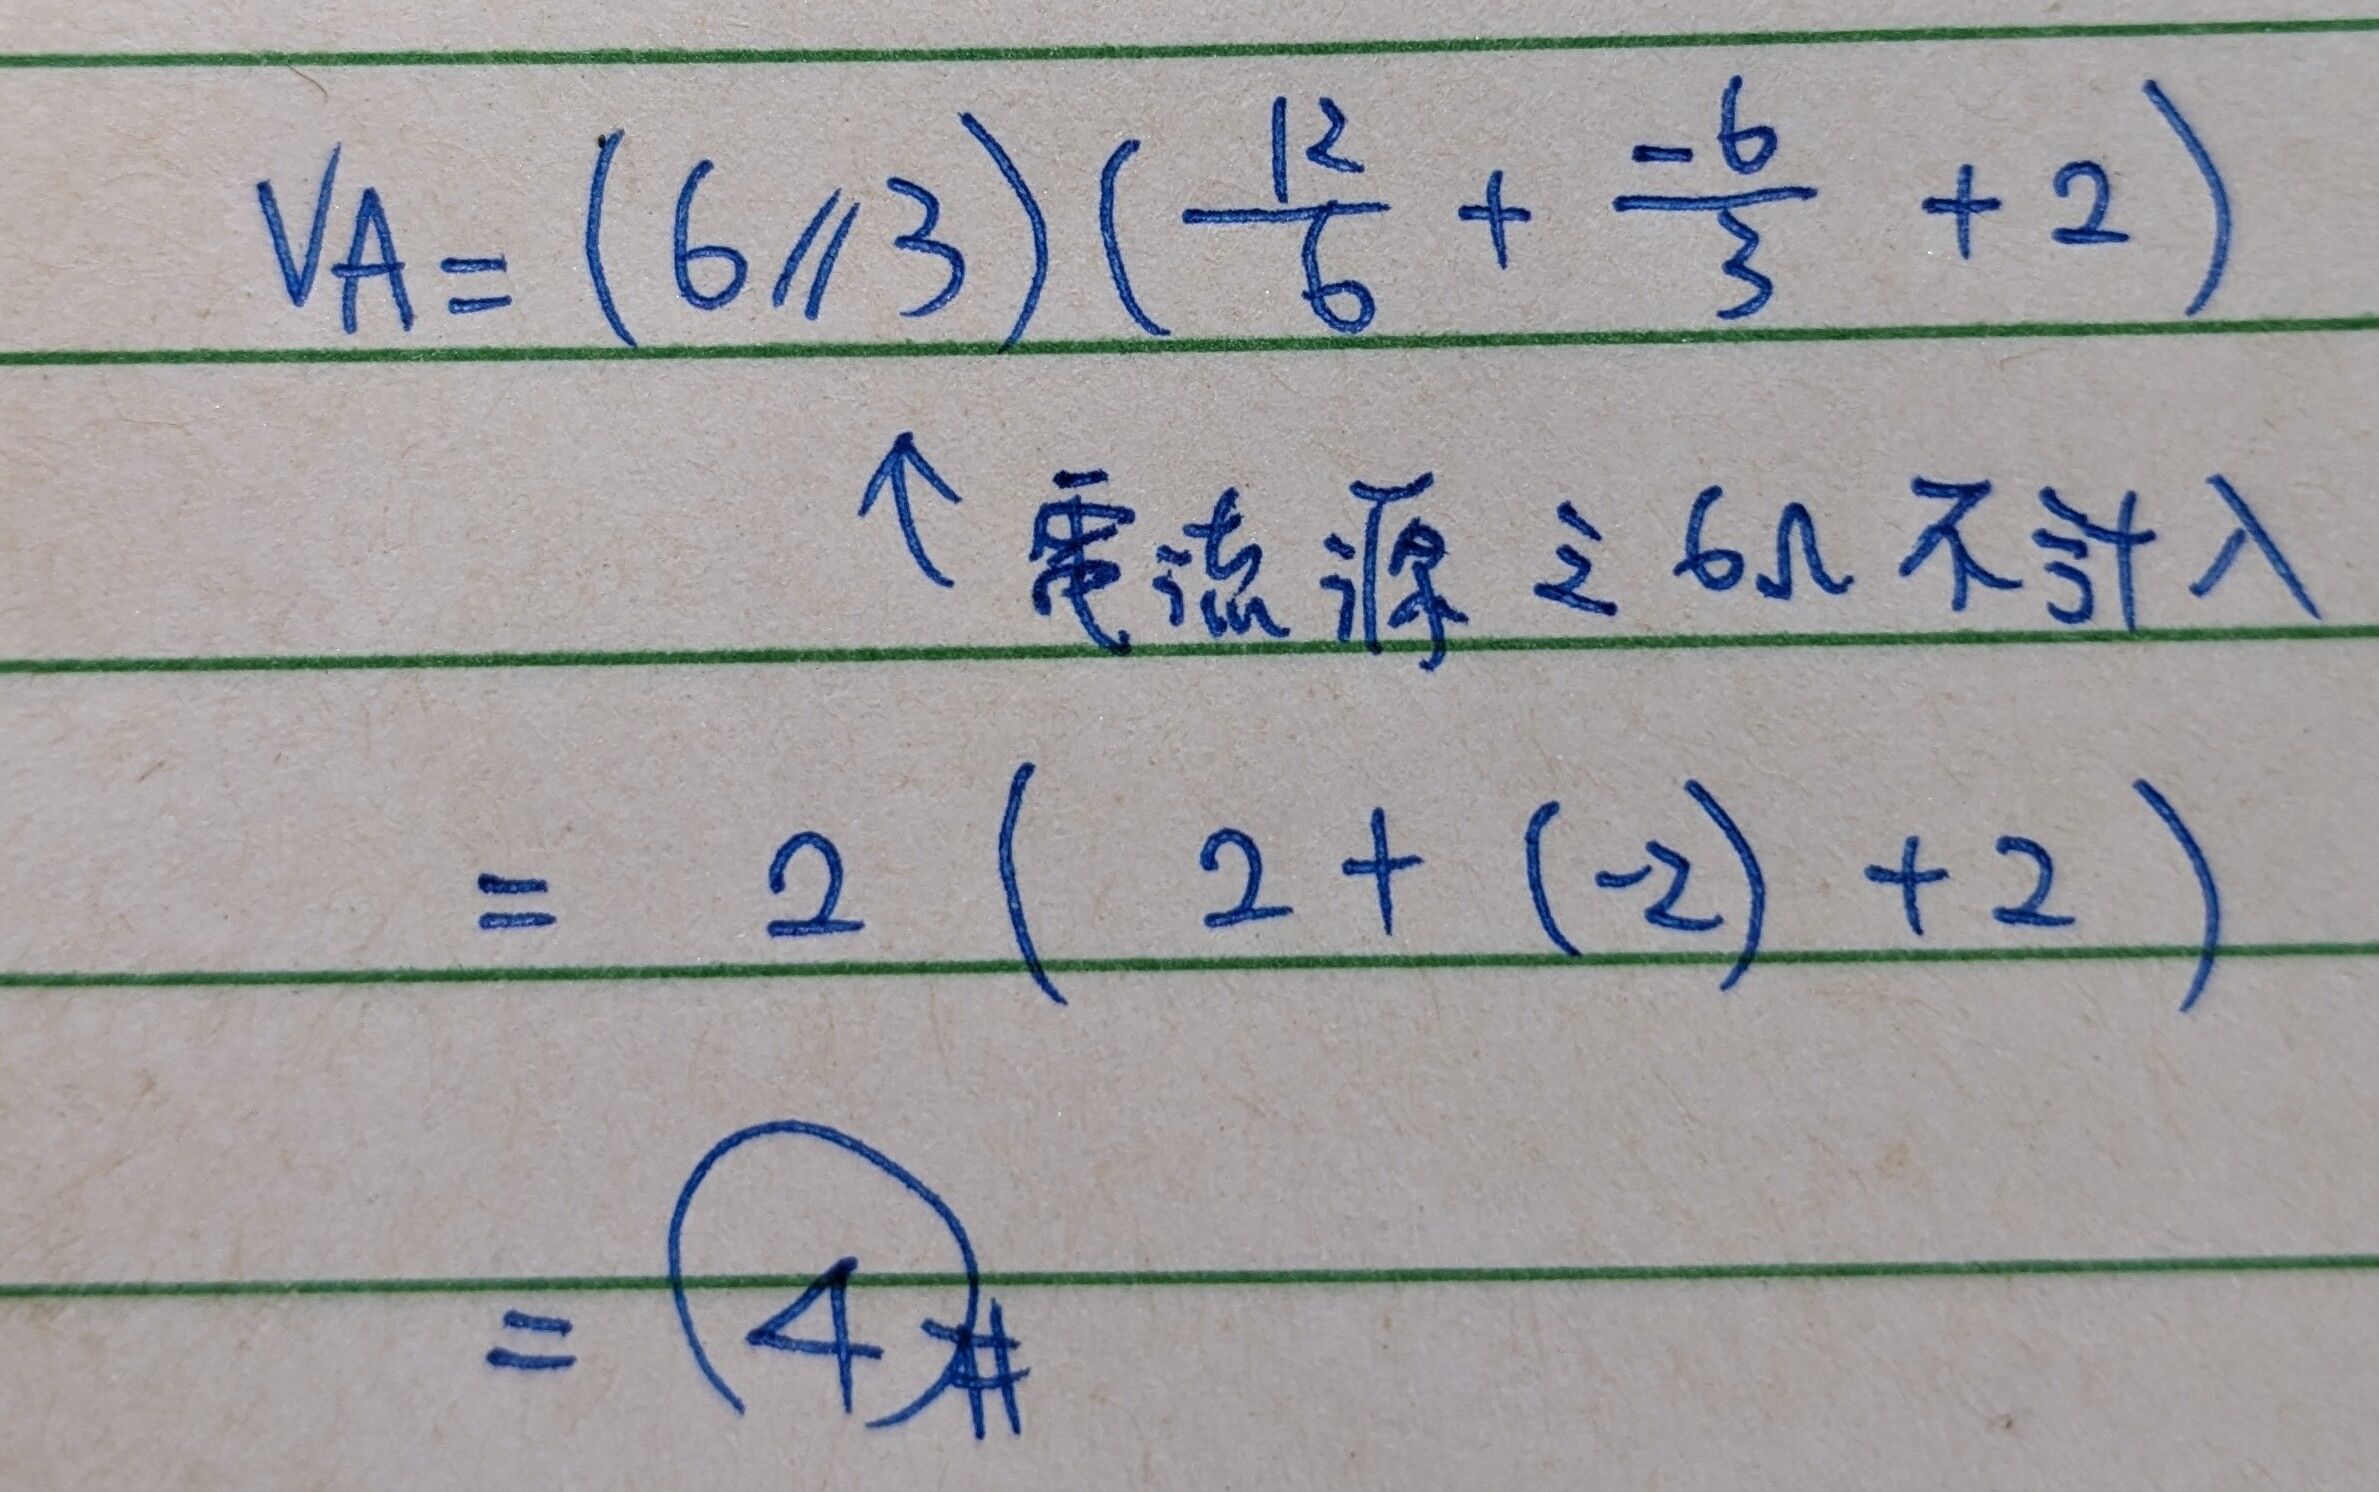 VA = (6//3)(12/6 + -6/3 + 2)
↑ 電流源之6Ω不計入
= 2 ( 2 + (-2) + 2 )
= 4 #